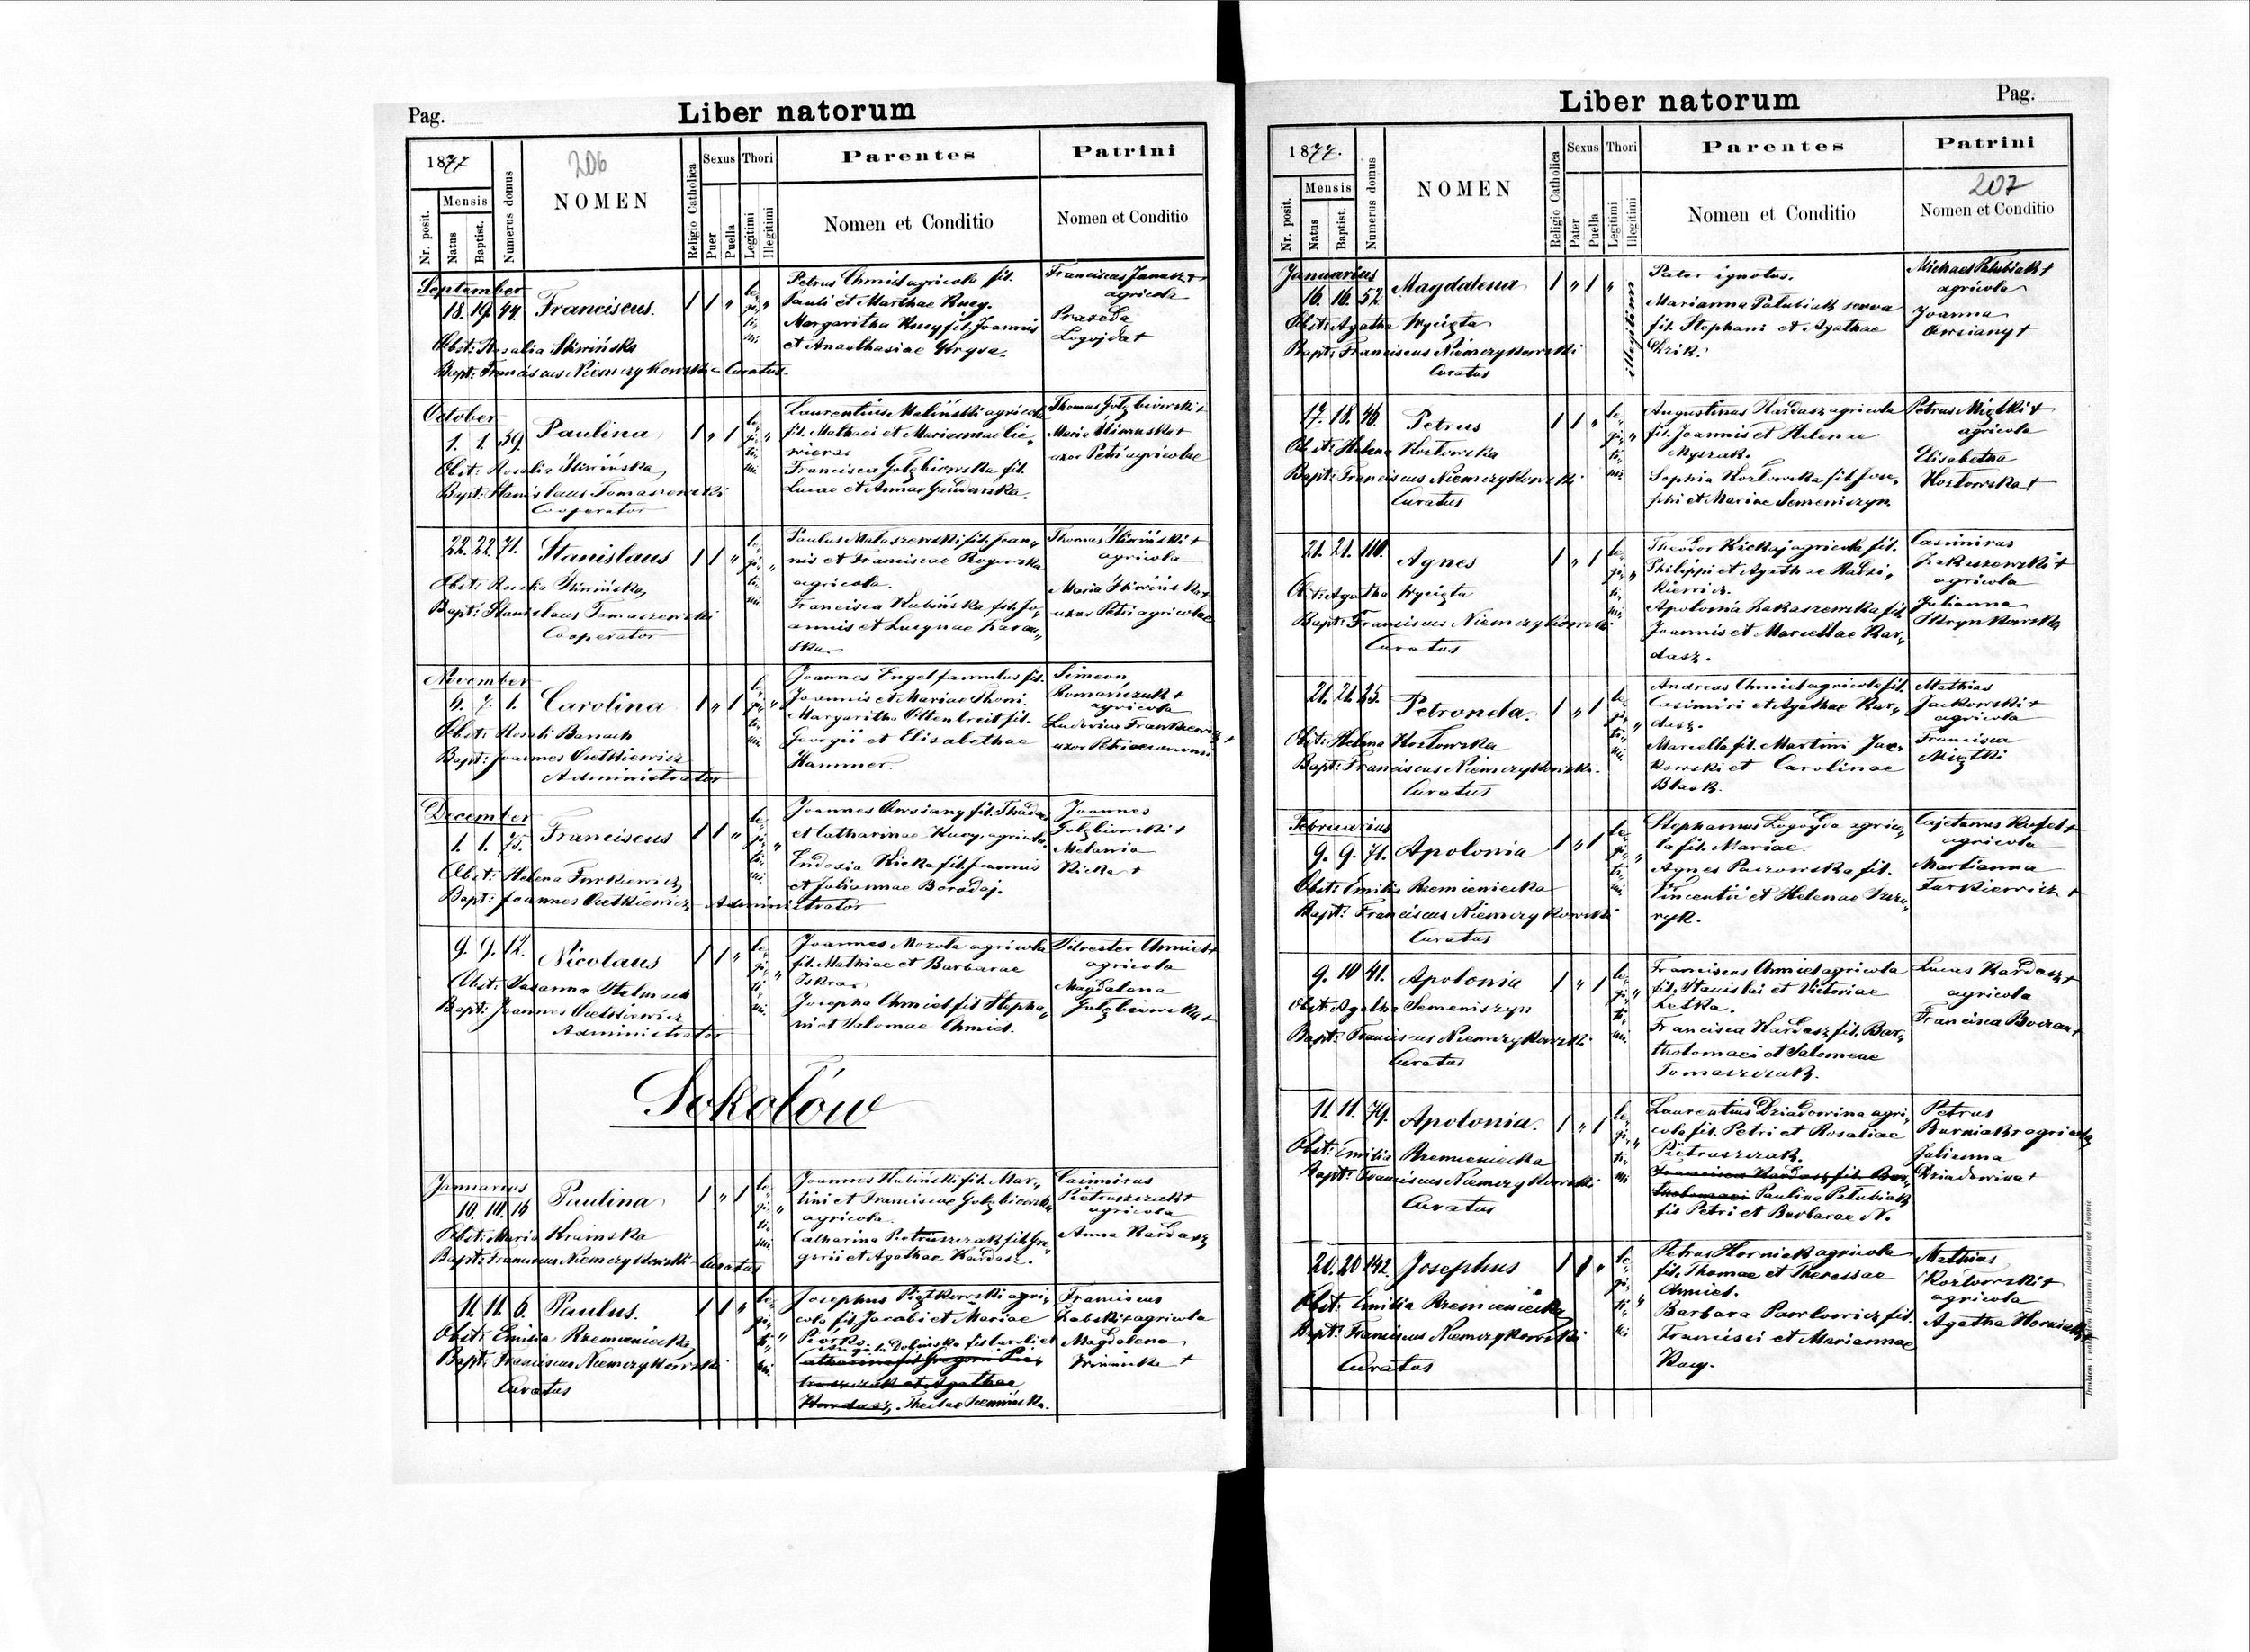 Pag.
Liber natorum
1877
206
NOMEN
Nr. posit.
Mensis
Natus
Baptist.
Numerus domus
Religio Catholica
Sexus
Puer
Puella
Thori
Legitimi
Illegitimi
Parentes
Nomen et Conditio
Patrini
Nomen et Conditio
September
18. 19. 44. Franciscus. 1 1 "
Obst: Rosalia Sliwińska
Bapt: Franciscus Niemczykowski - Curatus.
Petrus Chmiel agricola fil.
Pauli et Marthae Kucy.
Margaritha Kucy fil. Joannis
et Anasthasiae Gryva.
Franciscus Janusz +
agricola
Praxeda
Logojda +
October
1. 1. 59. Paulina 1 " 1
Obst: Rosalia Sliwińska
Bapt: Stanislaus Tomaszewski
Cooperator
Laurentius Maliński agricola
fil. Mathaei et Mariannae
Francisca Gołębiowska fil.
Lucae et Annae
Thomas Gołębiowski +
Maria Sliwinska +
uxor Petri agricolae
22. 22. 71. Stanislaus 1 1 "
Obst: Rosalia Sliwińska
Bapt: Stanislaus Tomaszewski
Cooperator
Paulus Mataszewski fil. Joan„
nis et Franciscae Rogowska
agricola.
Francisca Kubińska fil. Jo„
annis et Lucynae
ska
Thomas Sliwiński +
agricola
Maria Sliwińska +
uxor Petri agricolae
November
6. 7. 1. Carolina 1 " 1
Obst: Rosali Banach
Bapt: Joannes Cietkiewicz
Administrator
Joannes Engel famulus fil.
Joannis et Mariae Thoni.
Margaritha Ottenbreit fil.
Georgii et Elisabethae
Hammer.
Simeon
Romańczuk +
agricola
Ludovica Frankiewicz +
uxor Petri oeconomi.
December
1. 1. 75. Franciscus 1 1 "
Obst: Helena Furkiewicz
Bapt: Joannes Cietkiewicz - Administrator
Joannes Owsiany fil. Thadae
et Catharinae Kucy, agricola.
Eudosia Kicka fil. Joannis
et Juliannae Boradaj.
Joannes
Gołębiowski +
Melania
Kicka +
9. 9. 12. Nicolaus 1 1 "
Obst: Susanna Stelmach
Bapt: Joannes Cietkiewicz
Administrator
Joannes Mozola agricola
fil. Mathiae et Barbarae
Iskra.
Josepha Chmiel fil Stepha„
ni et Salomae Chmiel.
Silvester Chmiel +
agricola
Magdalena
Gołębiowska +
Sokołów
Januarius
10. 10. 16 Paulina 1 " 1
Obst: Maria Krainska
Bapt: Franciscus Niemczykowski - Curatus
Joannes Kubiński fil. Mar„
tini et Franciscae Gołębiowska
agricola.
Catharina Pietruszczak fil. Gre„
gorii et Agathae Kardasz.
Casimirus
Pietruszczak +
agricola
Anna Kardasz
11. 11. 6. Paulus. 1 1 "
Obst: Emilia Rzemieniecka
Bapt: Franciscus Niemczykowski
Curatus
Josephus Piątkowski agri„
cola fil. Jacobi et Mariae
Piórko.
Angela Dolińska fil. Caroli et
Catharina fil Gregorii Pie„
truszczak et Agathae
Kardasz. Theclae
Franciscus
Żabski + agricola
Magdalena
Winnicka +
Liber natorum
Pag.
1877.
NOMEN
Nr. posit.
Mensis
Natus
Baptist.
Numerus domus
Religio Catholica
Sexus
Pater
Puella
Thori
Legitimi
Illegitimi
Parentes
Nomen et Conditio
Patrini
207
Nomen et Conditio
Januarius
16. 16. 52. Magdalena 1 " 1 "
illegitimi
Obst: Agatha Wycięta
Bapt: Franciscus Niemczykowski
Curatus
Pater ignotus.
Marianna Palubiak serva
fil. Stephani et Agathae
Michael Palubiak +
agricola
Joanna
Owsiany +
17. 18. 46. Petrus 1 1 "
Obst: Helena Kozłowska
Bapt: Franciscus Niemczykowski
Curatus
Augustinus Kardasz agricola
fil. Joannis et Helenae
Myszak.
Sophia Kozłowska fil. Jose„
phi et Mariae Semeniszyn.
Petrus Miątki +
agricola
Elisabetha
Kozłowska +
21. 21. 110. Agnes 1 " 1
Obst: Agatha Wycięta
Bapt: Franciscus Niemczykowski
Curatus
Theodor Kickaj agricola fil.
Philippi et Agathae Radzi„
kiewicz.
Apolonia Lukaszewska fil.
Joannis et Marcellae Kar„
dasz.
Casimirus
Lukaszewski +
agricola
Julianna
Skrynkowska
21. 21. 25. Petronela. 1 " 1
Obst: Helena Kozłowska
Bapt: Franciscus Niemczykowski.
Curatus
Andreas Chmiel agricola fil.
Casimiri et Agathae Kar„
dasz.
Marcella fil. Martini Jac„
kowski et Carolinae
Błask.
Mathias
Jackowski +
agricola
Francisca
Miątki
Februarius
9. 9. 71. Apolonia 1 " 1
Obst: Emilia Rzemieniecka
Bapt: Franciscus Niemczykowski
Curatus
Stephanus Logojda agrico„
la fil. Mariae.
Agnes Paczowska fil.
Vincentii et Helenae
ryk.
Cajetanus Kufel +
agricola
Marianna
Furkiewicz +
9. 10 41. Apolonia 1 " 1
Obst: Agatha Semeniszyn
Bapt: Franciscus Niemczykowski
Curatus
Franciscus Chmiel agricola
fil. Stanislai et Victoriae
Letka.
Francisca Kardasz fil. Bar„
tholomaei et Salomeae
Tomaszczuk.
Lucas Kardasz +
agricola
Francisca Boczan +
11. 11. 79. Apolonia. 1 " 1
Obst: Emilia Rzemieniecka
Bapt: Franciscus Niemczykowski
Curatus
Laurentius Dziadowina agri„
cola fil. Petri et Rosaliae
Pietruszczak.
Francisca Kardasz fil. Bar„
tholomaei Paulina Palubiak
fil Petri et Barbarae N.
Petrus
Burniak + agricola
Julianna
Dziadowina +
20. 20 142. Josephus 1 1 "
Obst: Emilia Rzemieniecka
Bapt: Franciscus Niemczykowski
Curatus
Petrus Horniak agricola
fil. Thomae et Theressae
Chmiel.
Barbara Pawłowicz fil.
Francisci et Mariannae
Kucy.
Mathias
Kozłowski +
agricola
Agatha Horniak +